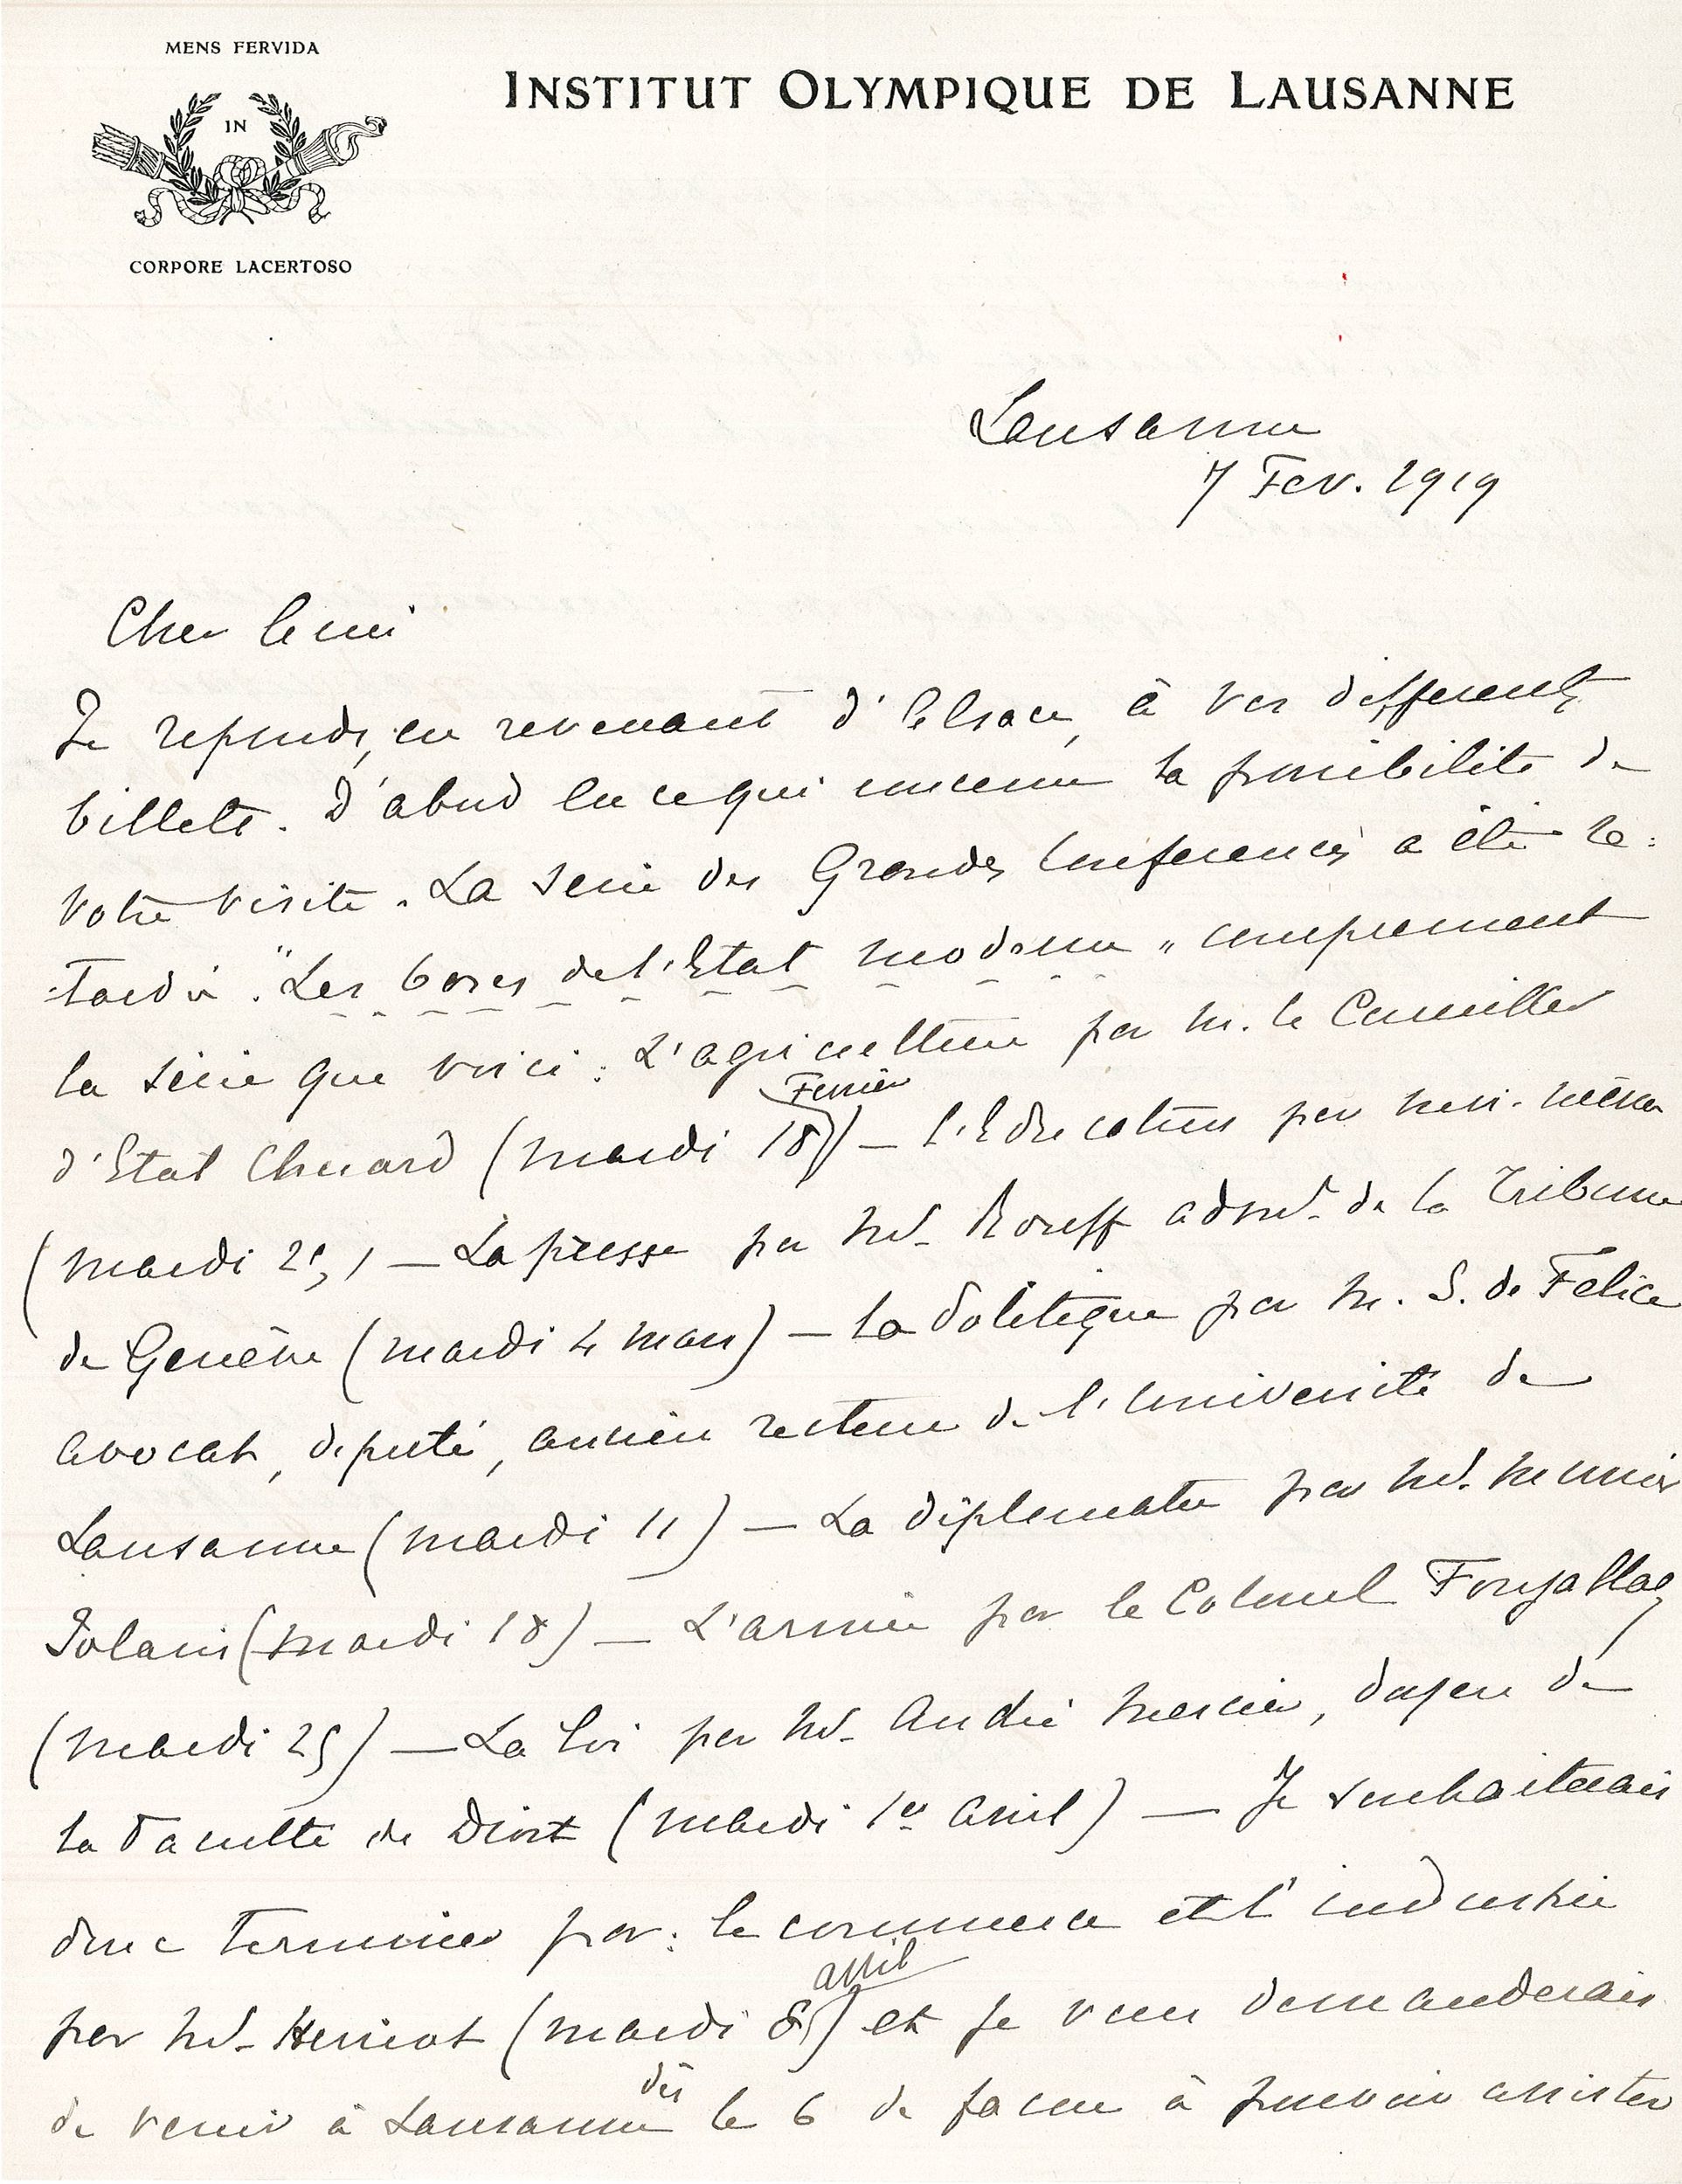 MENS FERVIDA
IN
CORPORE LACERTOSO
INSTITUT OLYMPIQUE DE LAUSANNE
Lausanne
7 Fev. 1919
Cher Ami
Je reponds, en revenant d'Alsace, à vos différents
billets. D'abord en ce qui concerne la possibilité de
votre visite. La serie des Grandes Conferences a été re:
:tardée. "Les bases de l'Etat moderne" comprennent
la série que voici : L'agriculture par M. le Conseiller
Fevrier
d'Etat Chuard (mardi 18) — l'Education par moi-même
(mardi 25) — La presse par Mr. Rouff admr. de la Tribune
de Genève (mardi 4 mars) — la Politique par M. S. de Felice
avocat, deputé, ancien recteur de l'Université de
Lausanne (mardi 11) — La diplomatie par Mr. Meunier
(mardi 18) — L'armée par le Colonel Fonjallaz
(mardi 25) — La loi par Mr. André Mercier, doyen de
la Faculté de Droit (mardi 1er Avril) — Je souhaiterais
donc terminer par : le commerce et l'industrie
avril
par Mr. Herriot (mardi 8) et je vous demanderais
dès
de venir à Lausanne le 6 de façon à pouvoir assister